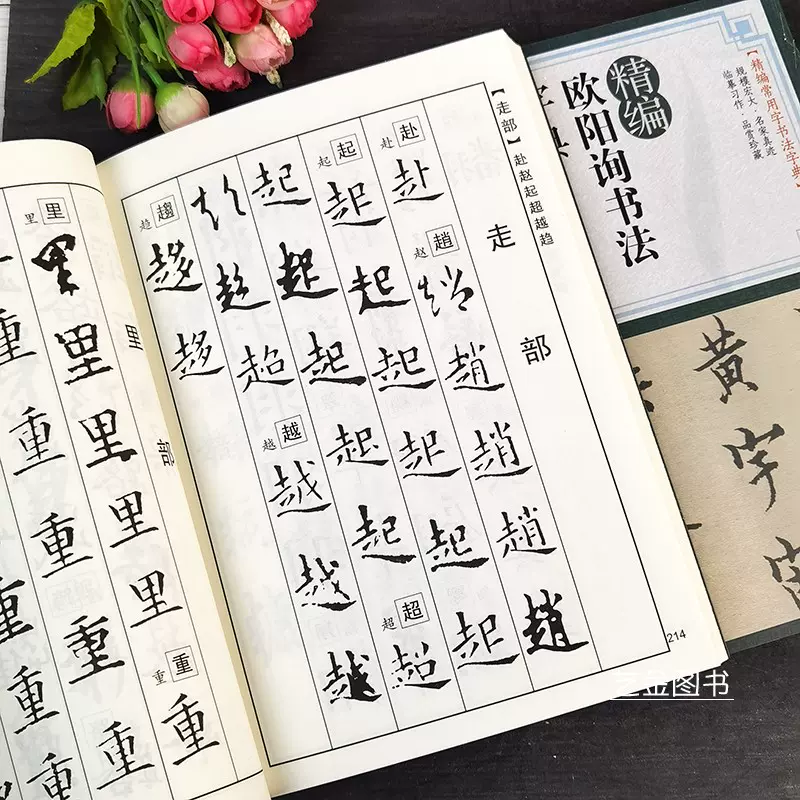 【走部】赴赵起超越趋
走部
赴 赴
赴
赵 趙
趙
趙
趙
趙
趙
起 起
起
起
起
起
起
起
起
起
起
起
起
超 超
超
超
超
超
越 越
越
越
越
趋 趨
趍
趍
214
里部
里 里
里
里
里
里
里
重 重
重
重
重
重
重
重
重
重
重
精编
欧阳询书法
字典
【精编常用字书法字典】
规模宏大·名家真迹
临摹习作·品赏珍藏
黄
字
金图书